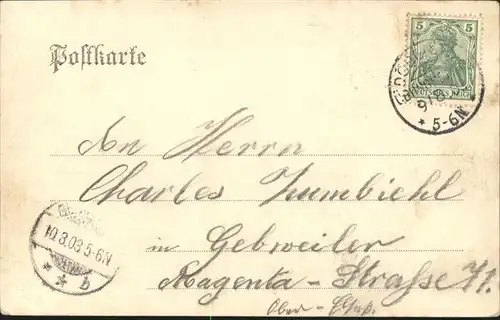 Postkarte
5 5
DEUTSCHES REICH
9/8
* 5-6N
An Herrn
Charles Zumbiehl
in Gebweiler
Magenta-Strasse 71.
Ober-Elsaß.
10.8.03.5-6N
* * b